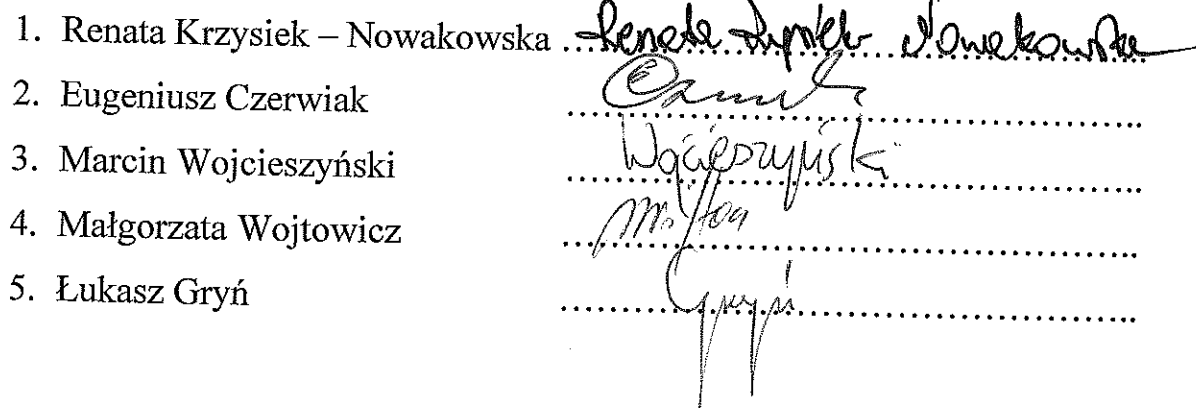 1. Renata Krzysiek – Nowakowska ...Renata Krzysiek Nowakowska
2. Eugeniusz Czerwiak ..........................................
3. Marcin Wojcieszyński Wojcieszyński
4. Małgorzata Wojtowicz ..........................................
5. Łukasz Gryń Gryń